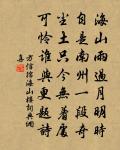 海山雨過月明時
自是南州一段奇
尘土只今無著處
可憐誰與更題詩
方信孺海山樓詩典網